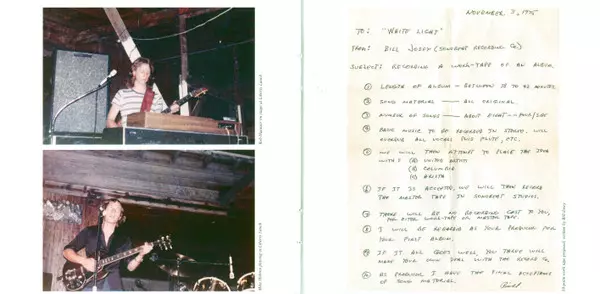 NOVEMBER 3, 1975
TO: "WHITE LIGHT"
FROM: BILL JOSEY (SONOBEAT RECORDING CO)
SUBJECT: RECORDING A WORK-TAPE OF AN ALBUM.
① LENGTH OF ALBUM — BETWEEN 38 TO 42 MINUTES
② SONG MATERIAL — ALL ORIGINAL
③ NUMBER OF SONGS — ABOUT EIGHT
④ BASIC MUSIC TO BE RECORDED IN STEREO. WILL
OVERDUB ALL VOCALS PLUS FLUTE, ETC.
⑤ WE WILL THEN ATTEMPT TO PLACE THE TAPE
WITH: (A) UNITED ARTISTS
(B) COLUMBIA
(C) ARISTA
IF IT IS ACCEPTED, WE WILL THEN RECORD
THE MASTER TAPE IN SONOBEAT STUDIOS.
THERE WILL BE NO RECORDING COST TO YOU,
FOR EITHER WORK-TAPE OR MASTER TAPE.
I WILL BE REGARDED AS YOUR PRODUCER FOR
YOUR FIRST ALBUM.
IF IT ALL GOES WELL, YOU THREE WILL
MAKE YOUR OWN DEAL WITH THE RECORD CO.
AS PRODUCER I HAVE THE FINAL ACCEPTANCE
OF SONG MATERIAL.
Bill